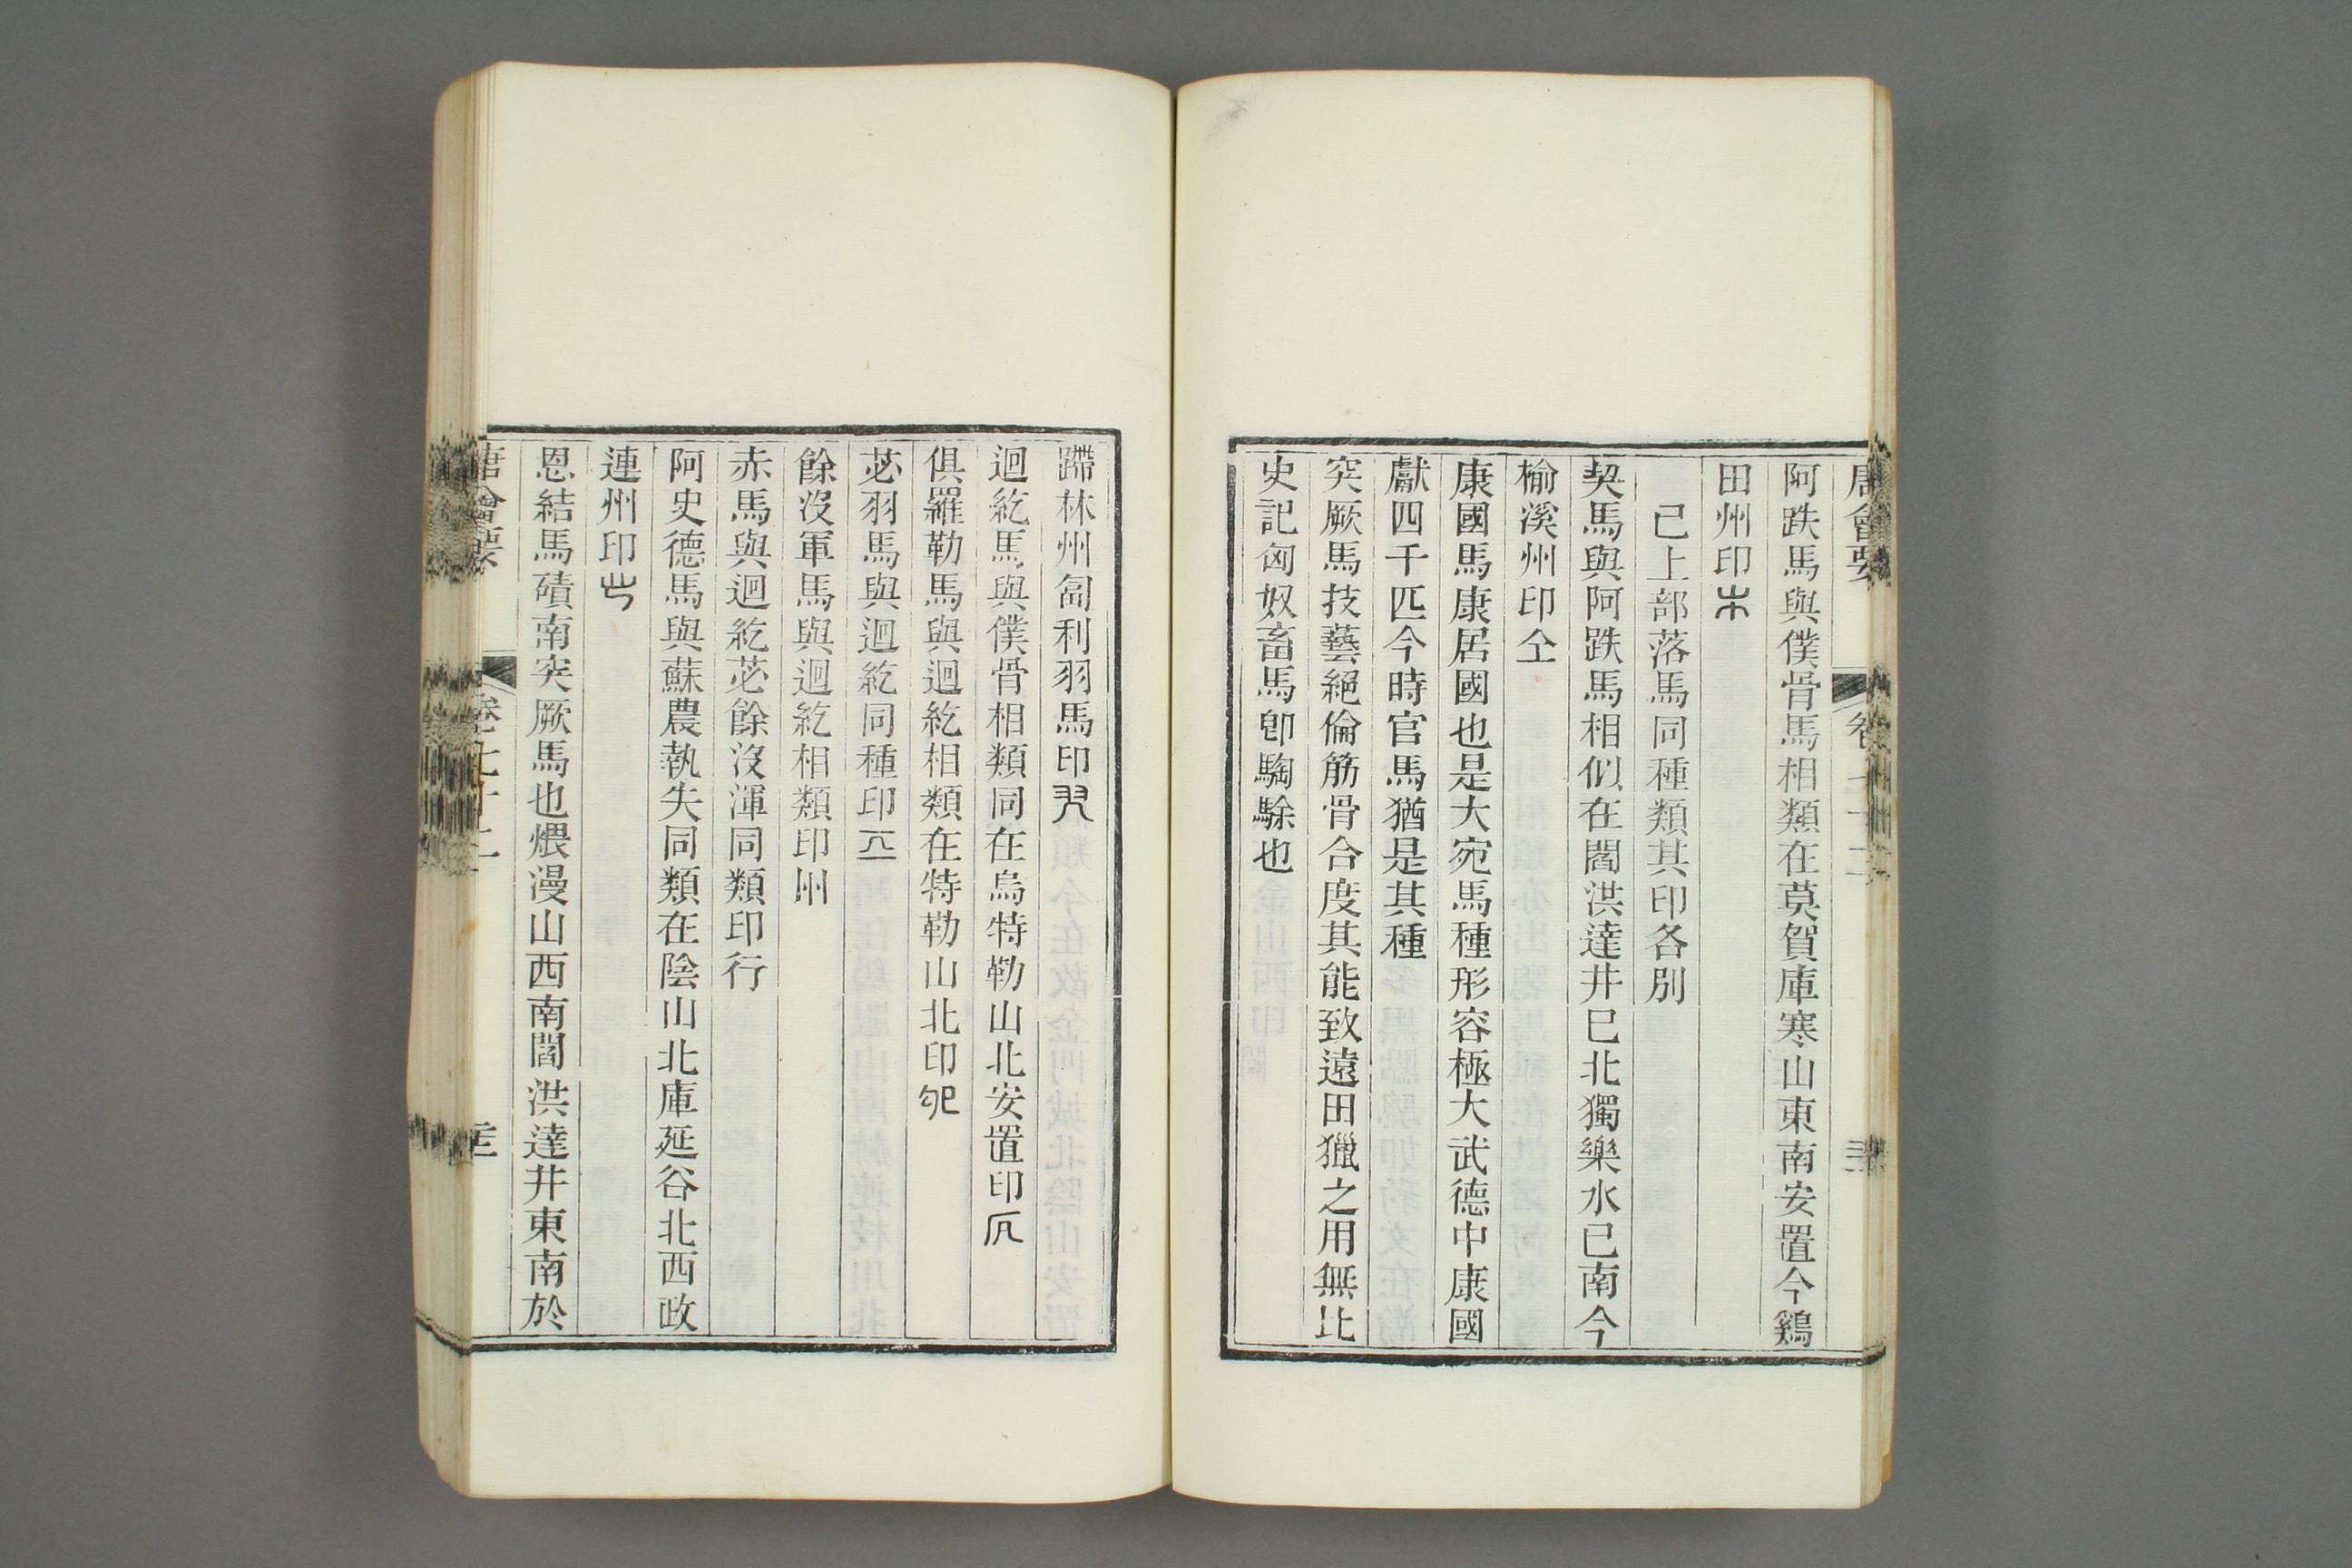 唐會要 卷七十二
阿跌馬與僕骨馬相類在莫賀庫寒山東南安置今鷄
田州印
已上部落馬同種類其印各別
契馬與阿跌馬相似在閻洪達井巳北獨樂水已南今
榆溪州印仝
康國馬康居國也是大宛馬種形容極大武德中康國
獻四千匹今時官馬猶是其種
突厥馬技藝絕倫筋骨合度其能致遠田獵之用無比
史記匈奴畜馬卽騊駼也
蹛林州匐利羽馬印
迴紇馬與僕骨相類同在烏特勒山北安置印
俱羅勒馬與迴紇相類在特勒山北印
苾羽馬與迴紇同種印
餘沒軍馬與迴紇相類印州
赤馬與迴紇苾餘沒渾同類印行
阿史德馬與蘇農執失同類在陰山北庫延谷北西政
連州印
恩結馬磧南突厥馬也煨漫山西南閻洪達井東南於
唐會要 卷七十二